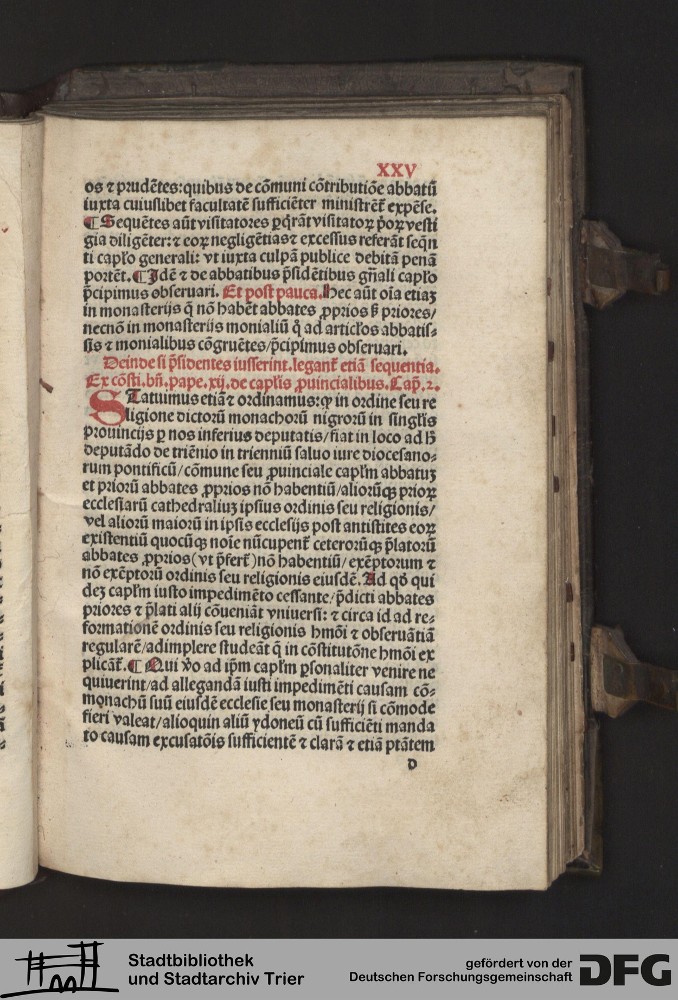 XXV
os ⁊ prudētes: quibus de cōmuni cōtributiōe abbatū
iuxta cuiuslibet facultatē sufficiēter ministrēt̄ expēse.
¶ Sequētes aūt visitatores ꝑq̄rāt visitatoꝝ p̄orꝝ vesti
gia diligēter: ⁊ eoꝝ negligētias ⁊ excessus referāt seq̄n
ti capl̄o generali: vt iuxta culpā publice debitā penā
portēt. ¶ Idē ⁊ de abbatibus p̄sidētibus gn̄ali capl̄o
p̄cipimus obseruari. Et post pauca. Hec aūt oīa etiaꝫ
in monasterijs q̄ nō habēt abbates ꝓprios ß priores/
necnō in monasterijs monialiū q̄ ad articl̄os abbatis⸗
sis ⁊ monialibus cōgruētes/p̄cipimus obseruari.
Deinde si p̄sidentes iusserint. legant̄ etiā sequentia.
Ex cōsti. bn̄. pape. xij. de capl̄is ꝓuincialibus. Cap̄. 2.
STatuimus etiā ⁊ ordinamus: ꝙ in ordine seu re
ligione dictorū monachorū nigrorū in singl̄is
prouincijs ꝑ nos inferius deputatis/fiat in loco ad h̄
deputādo de triēnio in trienniū saluo iure diocesano⸗
rum pontificū/cōmune seu ꝓuinciale capl̄m abbatuꝫ
et priorū abbates ꝓprios nō habentiū/aliorūqꝫ prioꝝ
ecclesiarū cathedraliuꝫ ipsius ordinis seu religionis/
vel aliorū maiorū in ipsis ecclesijs post antistites eoꝝ
existentiū quocūqꝫ noīe nūcupent̄ ceterorūqꝫ p̄latorū
abbates ꝓprios (vt p̄fert̄) nō habentiū/exēptorum ⁊
nō exēptorū ordinis seu religionis eiusdē. Ad qd̄ qui
deꝫ capl̄m iusto impedimēto cessante/p̄dicti abbates
priores ⁊ p̄lati alij cōueniāt vniuersi: ⁊ circa id ad re⸗
formationē ordinis seu religionis hmōi ⁊ obseruātiā
regularē/adimplere studeāt q̄ in cōstitutōne hmōi ex
plicāt̄. ¶ Qui v̄o ad ip̄m capl̄m ꝑsonaliter venire ne
quiuerint/ad allegandā iusti impedimēti causam cō⸗
monachū suū eiusdē ecclesie seu monasterij si cōmode
fieri valeat/alioquin aliū ydoneū cū sufficiēti manda
to causam excusatōis sufficientē ⁊ clarā ⁊ etiā ptātem
d
Stadtbibliothek
und Stadtarchiv Trier
gefördert von der
Deutschen Forschungsgemeinschaft
DFG